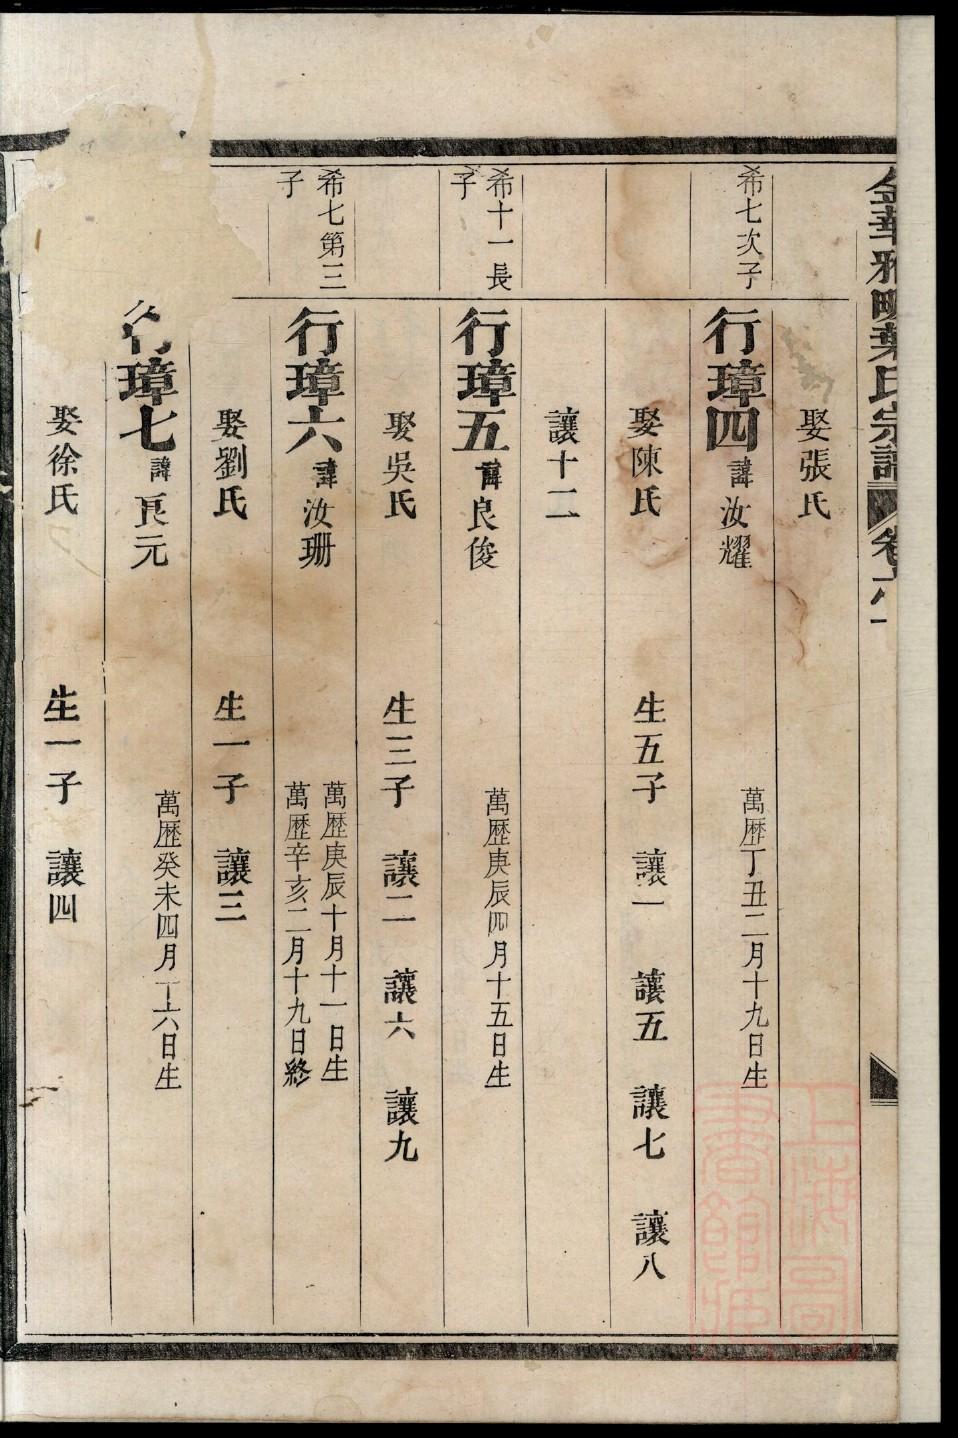 金華雅畈葉氏宗譜 卷六
娶張氏
希七次子
行璋四 諱汝耀 萬歷丁丑二月十九日生
娶陳氏 生五子 讓一 讓五 讓七 讓八
讓十二
希十一長子
行璋五 諱良俊 萬歷庚辰四月十五日生
娶吳氏 生三子 讓二 讓六 讓九
希七第三子
行璋六 諱汝珊 萬歷庚辰十月十一日生
萬歷辛亥二月十九日終
娶劉氏 生一子 讓三
行璋七 諱良元 萬歷癸未四月十六日生
娶徐氏 生一子 讓四
上海圖書館藏